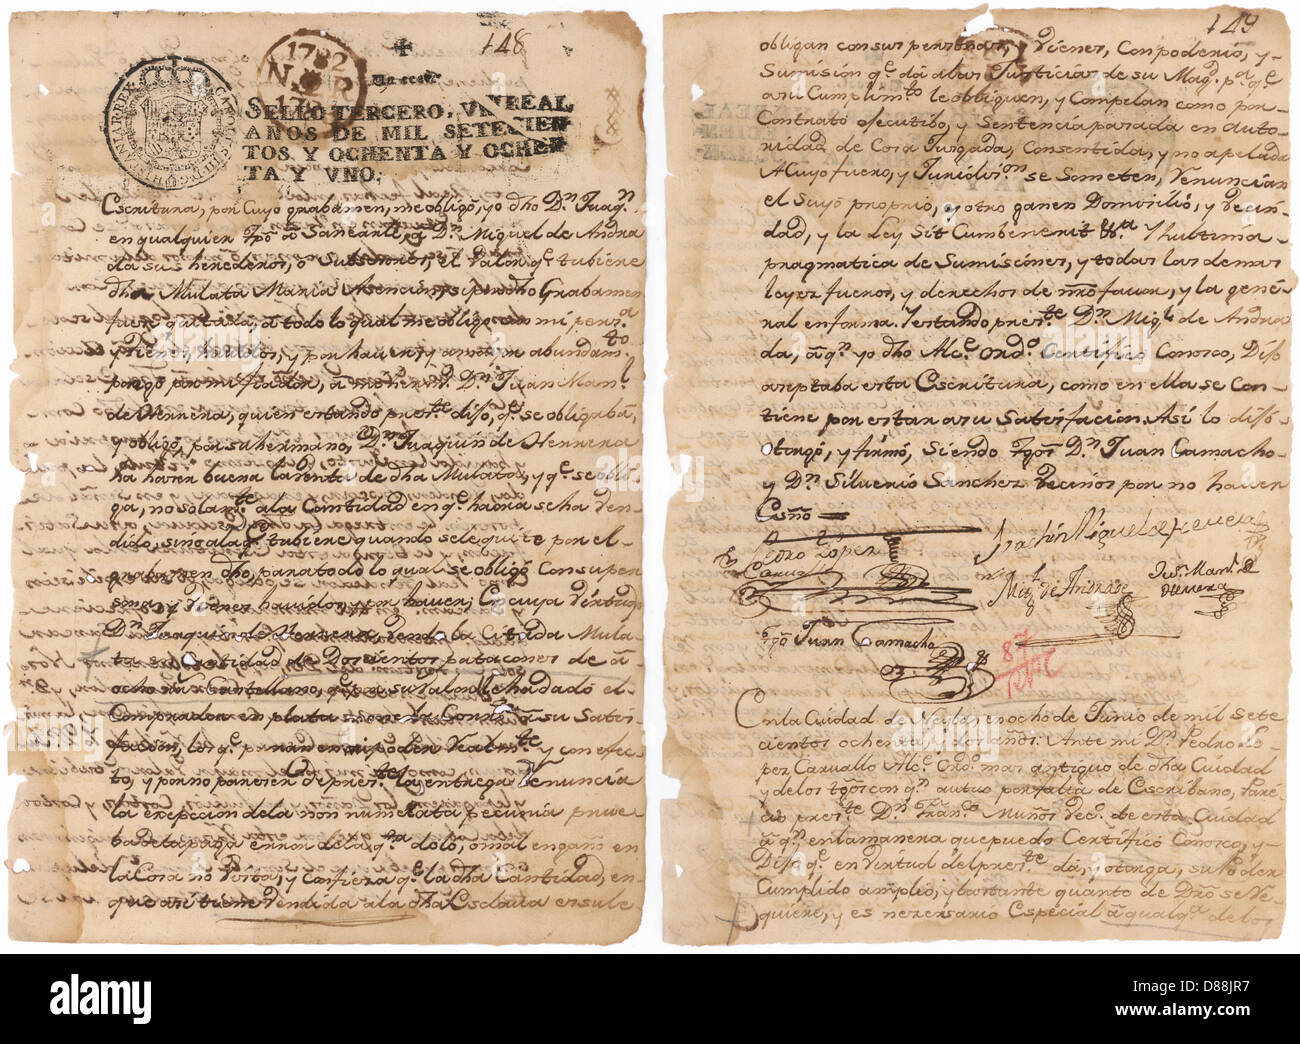 148
1782
Un real.
SELLO TERCERO, VN REAL,
AÑOS DE MIL SETECIEN
TOS Y OCHENTA Y OCHEN
TA Y VNO.
Escritura, por Cuyo grabamen, me obligo, yo dho Dn. Juaqn.
en qualquier tpõ â Sanearle, â Dn. Miguel de Andra
da sus herederos, o Subsesores, el Valor qe. tubiere
dha Mulata Maria Asencia, si pr. dho Grabamen
fuere quitada, â todo lo qual me obligo con mi persa.
y vienes, havidos, y por haver,
por mi fiador, â mi hermo. Dn. Juan Manl.
de Herrera, quien estando preste. dijo, qe. se obligaba,
y obligó, por su hermano, Dn. Juaquin de Herrera
ha haser buena la venta de dha Mulata, y qe. se obli-
ga, no solamte. a la Cantidad en qe. haora se ha ven-
dido, sino a la qe. tubiere quando se le quite por el-
grabamen dho, para todo lo qual se obligó con su per-
sona, y vienes havidos, y por haver; en cuya Virtud
Dn. Juaquin de Herrera, vende la Citada Mula-
ta en cantidad de Dorcientos patacones de â
ocho rs. Castellano, qe. por su Valor le ha dado el
Comprador en plata
facion, los qe. paran en mi poder realmte. y con efec-
to, y por no pareser de preste. la entrega Renuncia
la exepcion de la non numerata pecunia prueba
de la paga error de la qta. dolo, o mal engaño en
la Cosa no Vista, y Confiesa qe. la dha Cantidad, en-
que asi tiene Vendida a la dha Esclava es su le
149
obligan con sus personas, y Vienes, con poderio, y-
Sumision qe. dá a las Justicias de su Magd. pa. qe.
a su Cumplimto. le obliguen, y Compelan como por-
Contrato efecutibo, y Sentencia pasada en Auto-
ridad de Cosa Jusgada, Consentida, y no apelada
A Cuyo fuero, y Jurisdision se Someten, renuncian
el Suyo proprio, y otro ganen Domicilio, y Vecin-
dad, y la Ley Sit Cumbenerit y hultima-
pragmatica de Sumisiones, y todas las demas
leyes fueros, y derechos de nrõ favor, y la gene-
ral en forma. Y estando preste. Dn. Migl. de Andra
da, â qn. yo dho Alce. Ordo. Certifico Conosco, Dijo
aceptaba esta Escritura, como en ella se Con-
tiene por estar a su Satisfacion. Asi lo dijo-
Otorgó, y firmó, Siendo tgos Dn. Juan Camacho-
y Dn. Silverio Sanchez Vecinos por no haver
Esño
Pedro Lopez
Carvallo
Joachin Miguel de Herrera
Migl. de Andrade
Jn. Manl. de
Herrera
tgo Juan Camacho
En la Ciudad de Neyba, en ocho de Junio de mil sete
cientos ochenta, y dos años: Ante mi Dn. Pedro Lo-
pez Carvallo Alce. Ordo. mas antiguo de dha Ciudad
y de los tgos con qn. autuo por falta de Escribano, Pare-
cio preste. Dn. Franco. Muños Veco. de esta Ciudad
â qn. en la manera que puedo Certifico Conosco, y-
Dijo qe. en Virtud del preste. dá, y otorga, su Poder
Cumplido amplio, y bastante quanto de Dro. se re-
quiere, y es nesesario Especial â qualqa. de los
alamy
Image ID: D88JR7
www.alamy.com